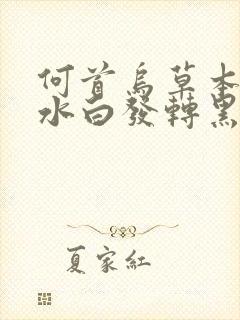 何首烏草本
水白發轉黑
夏家紅